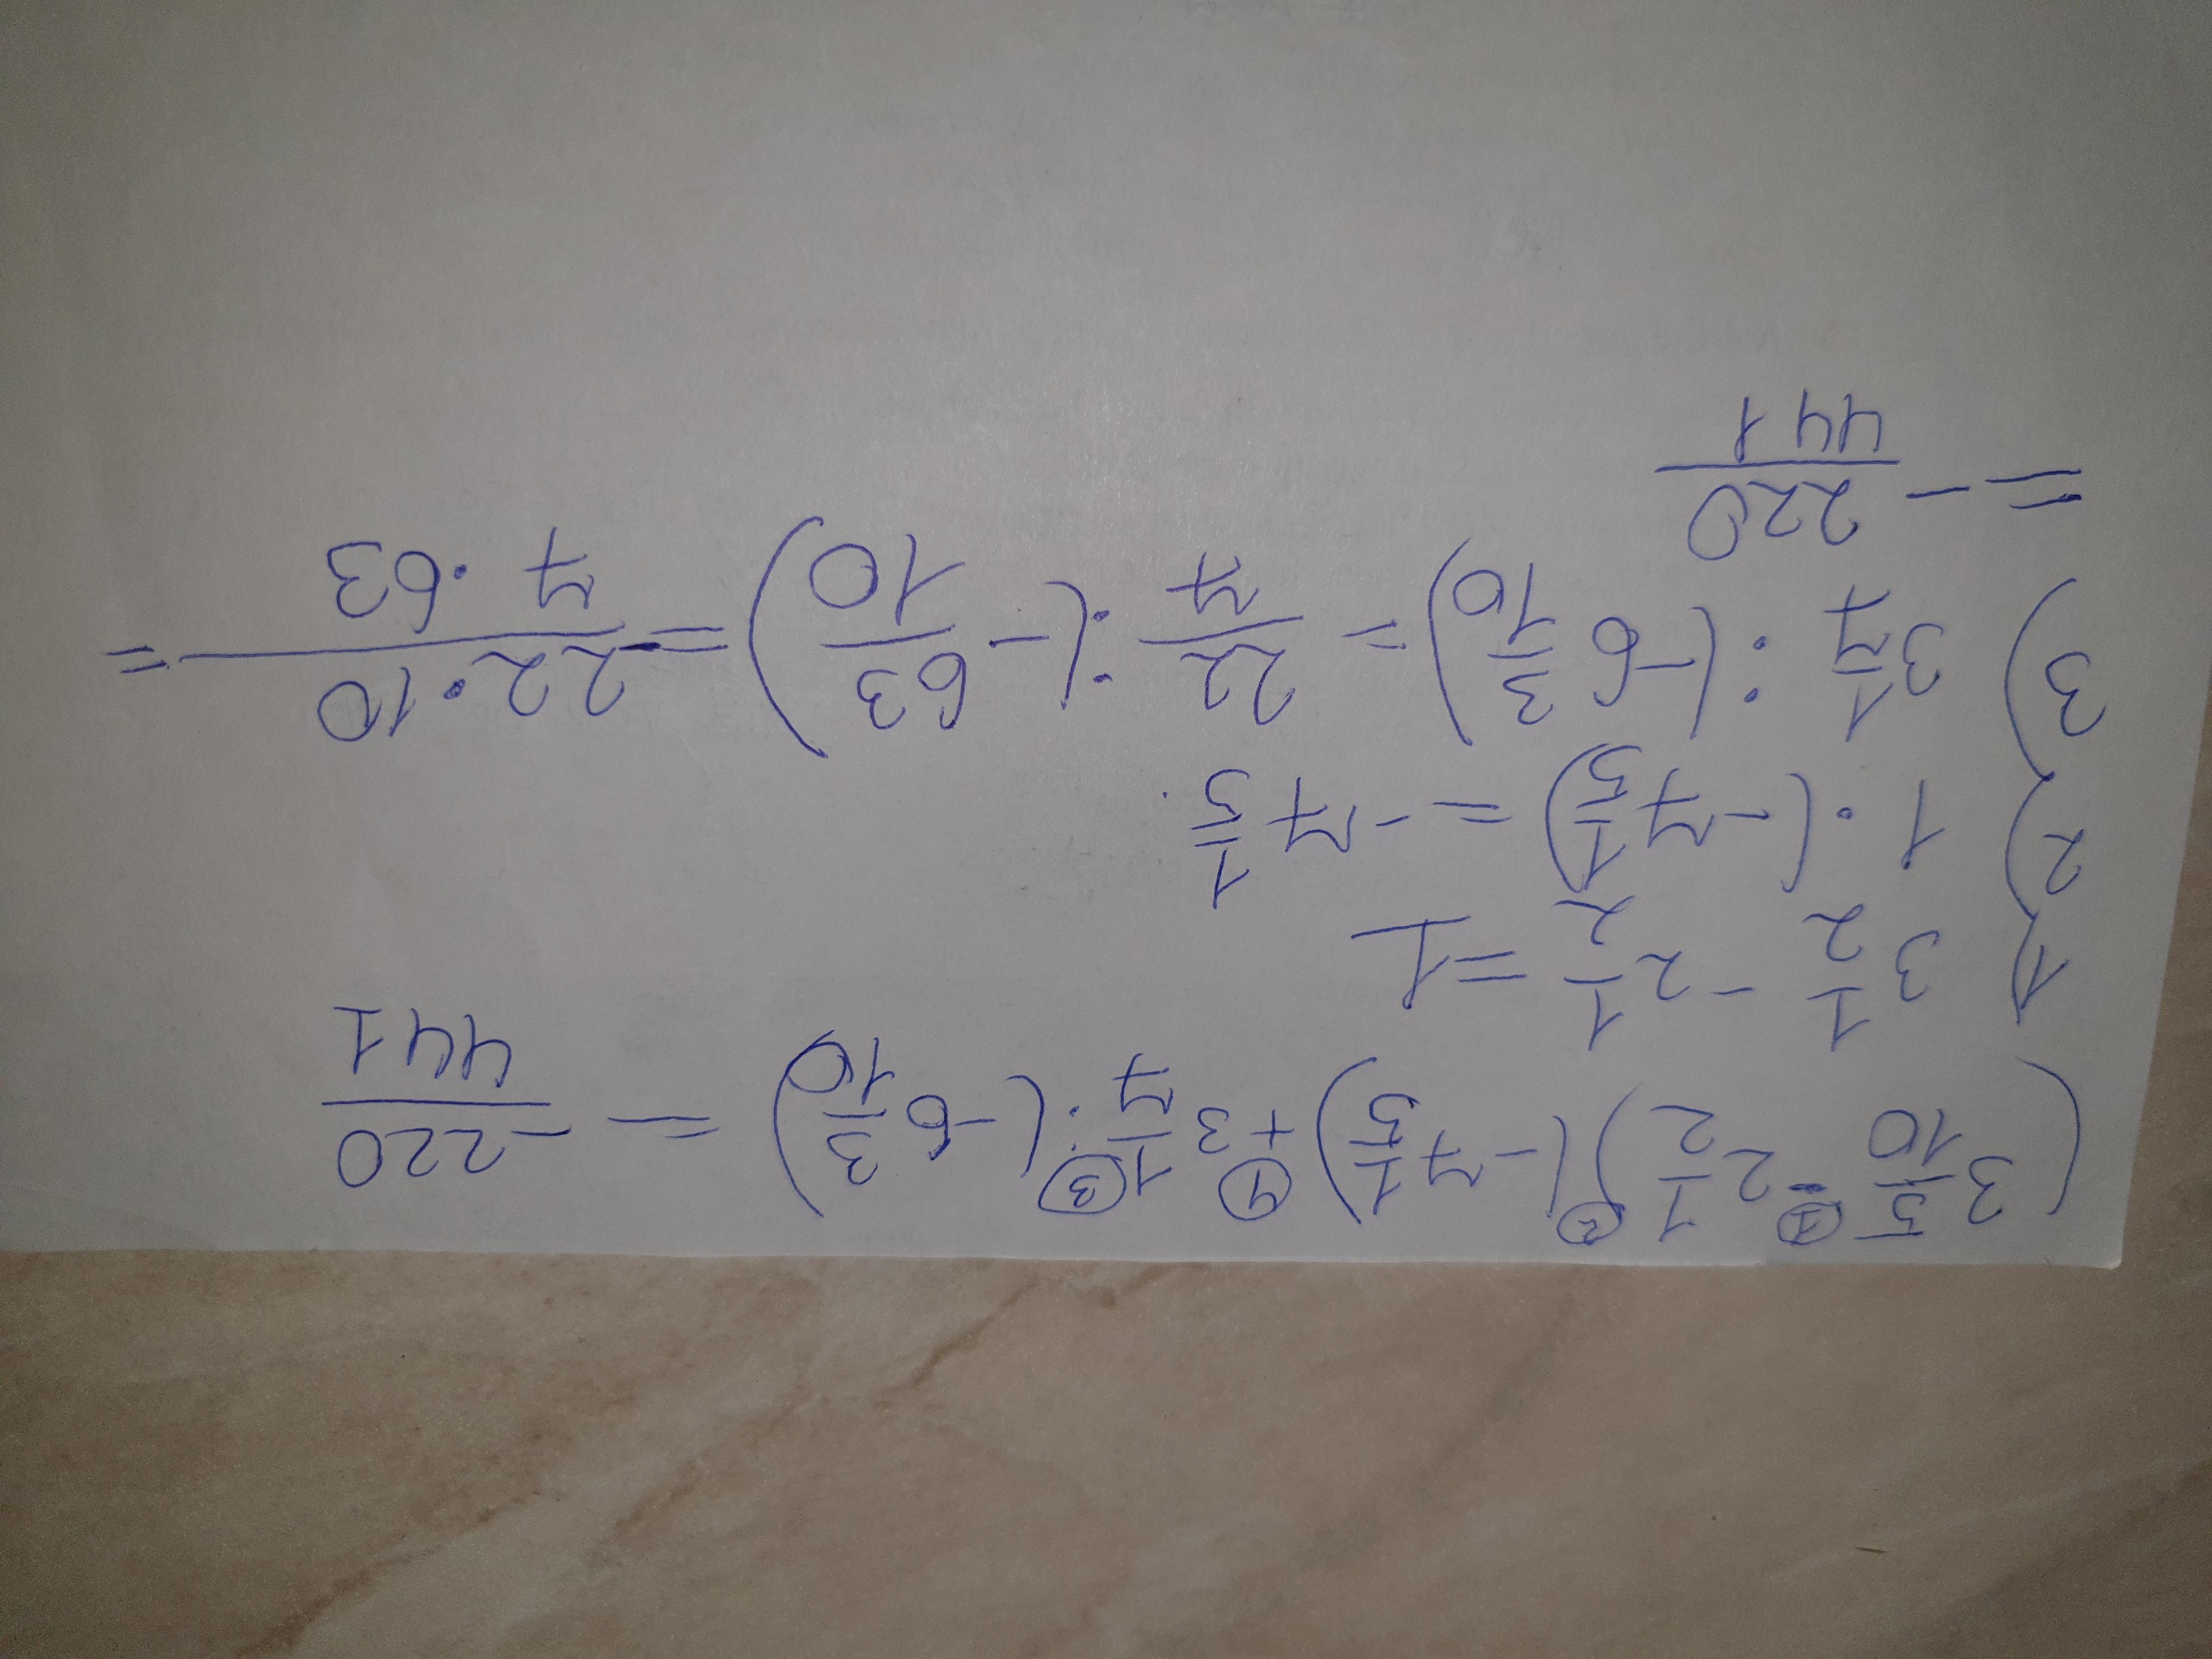 (3 5/10 ①- 2 1/2) ②(-7 1/5) ④+ 3 1/7 ③: (-6 3/10) = -220/441
1) 3 1/2 - 2 1/2 = 1
2) 1 · (-7 1/5) = -7 1/5.
3) 3 1/7 : (-6 3/10) = 22/7 : (-63/10) = -22·10/7·63 =
= -220/441